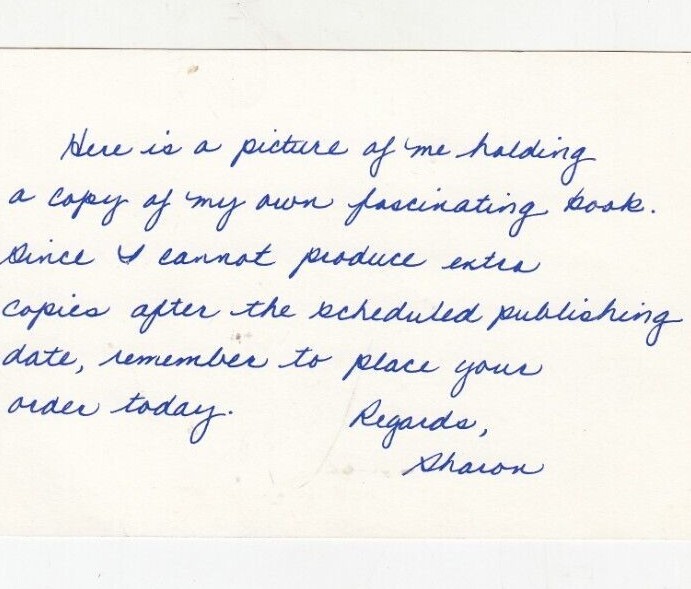 Here is a picture of me holding
a copy of my own fascinating book.
Since I cannot produce extra
copies after the scheduled publishing
date, remember to place your
order today.
Regards,
Sharon